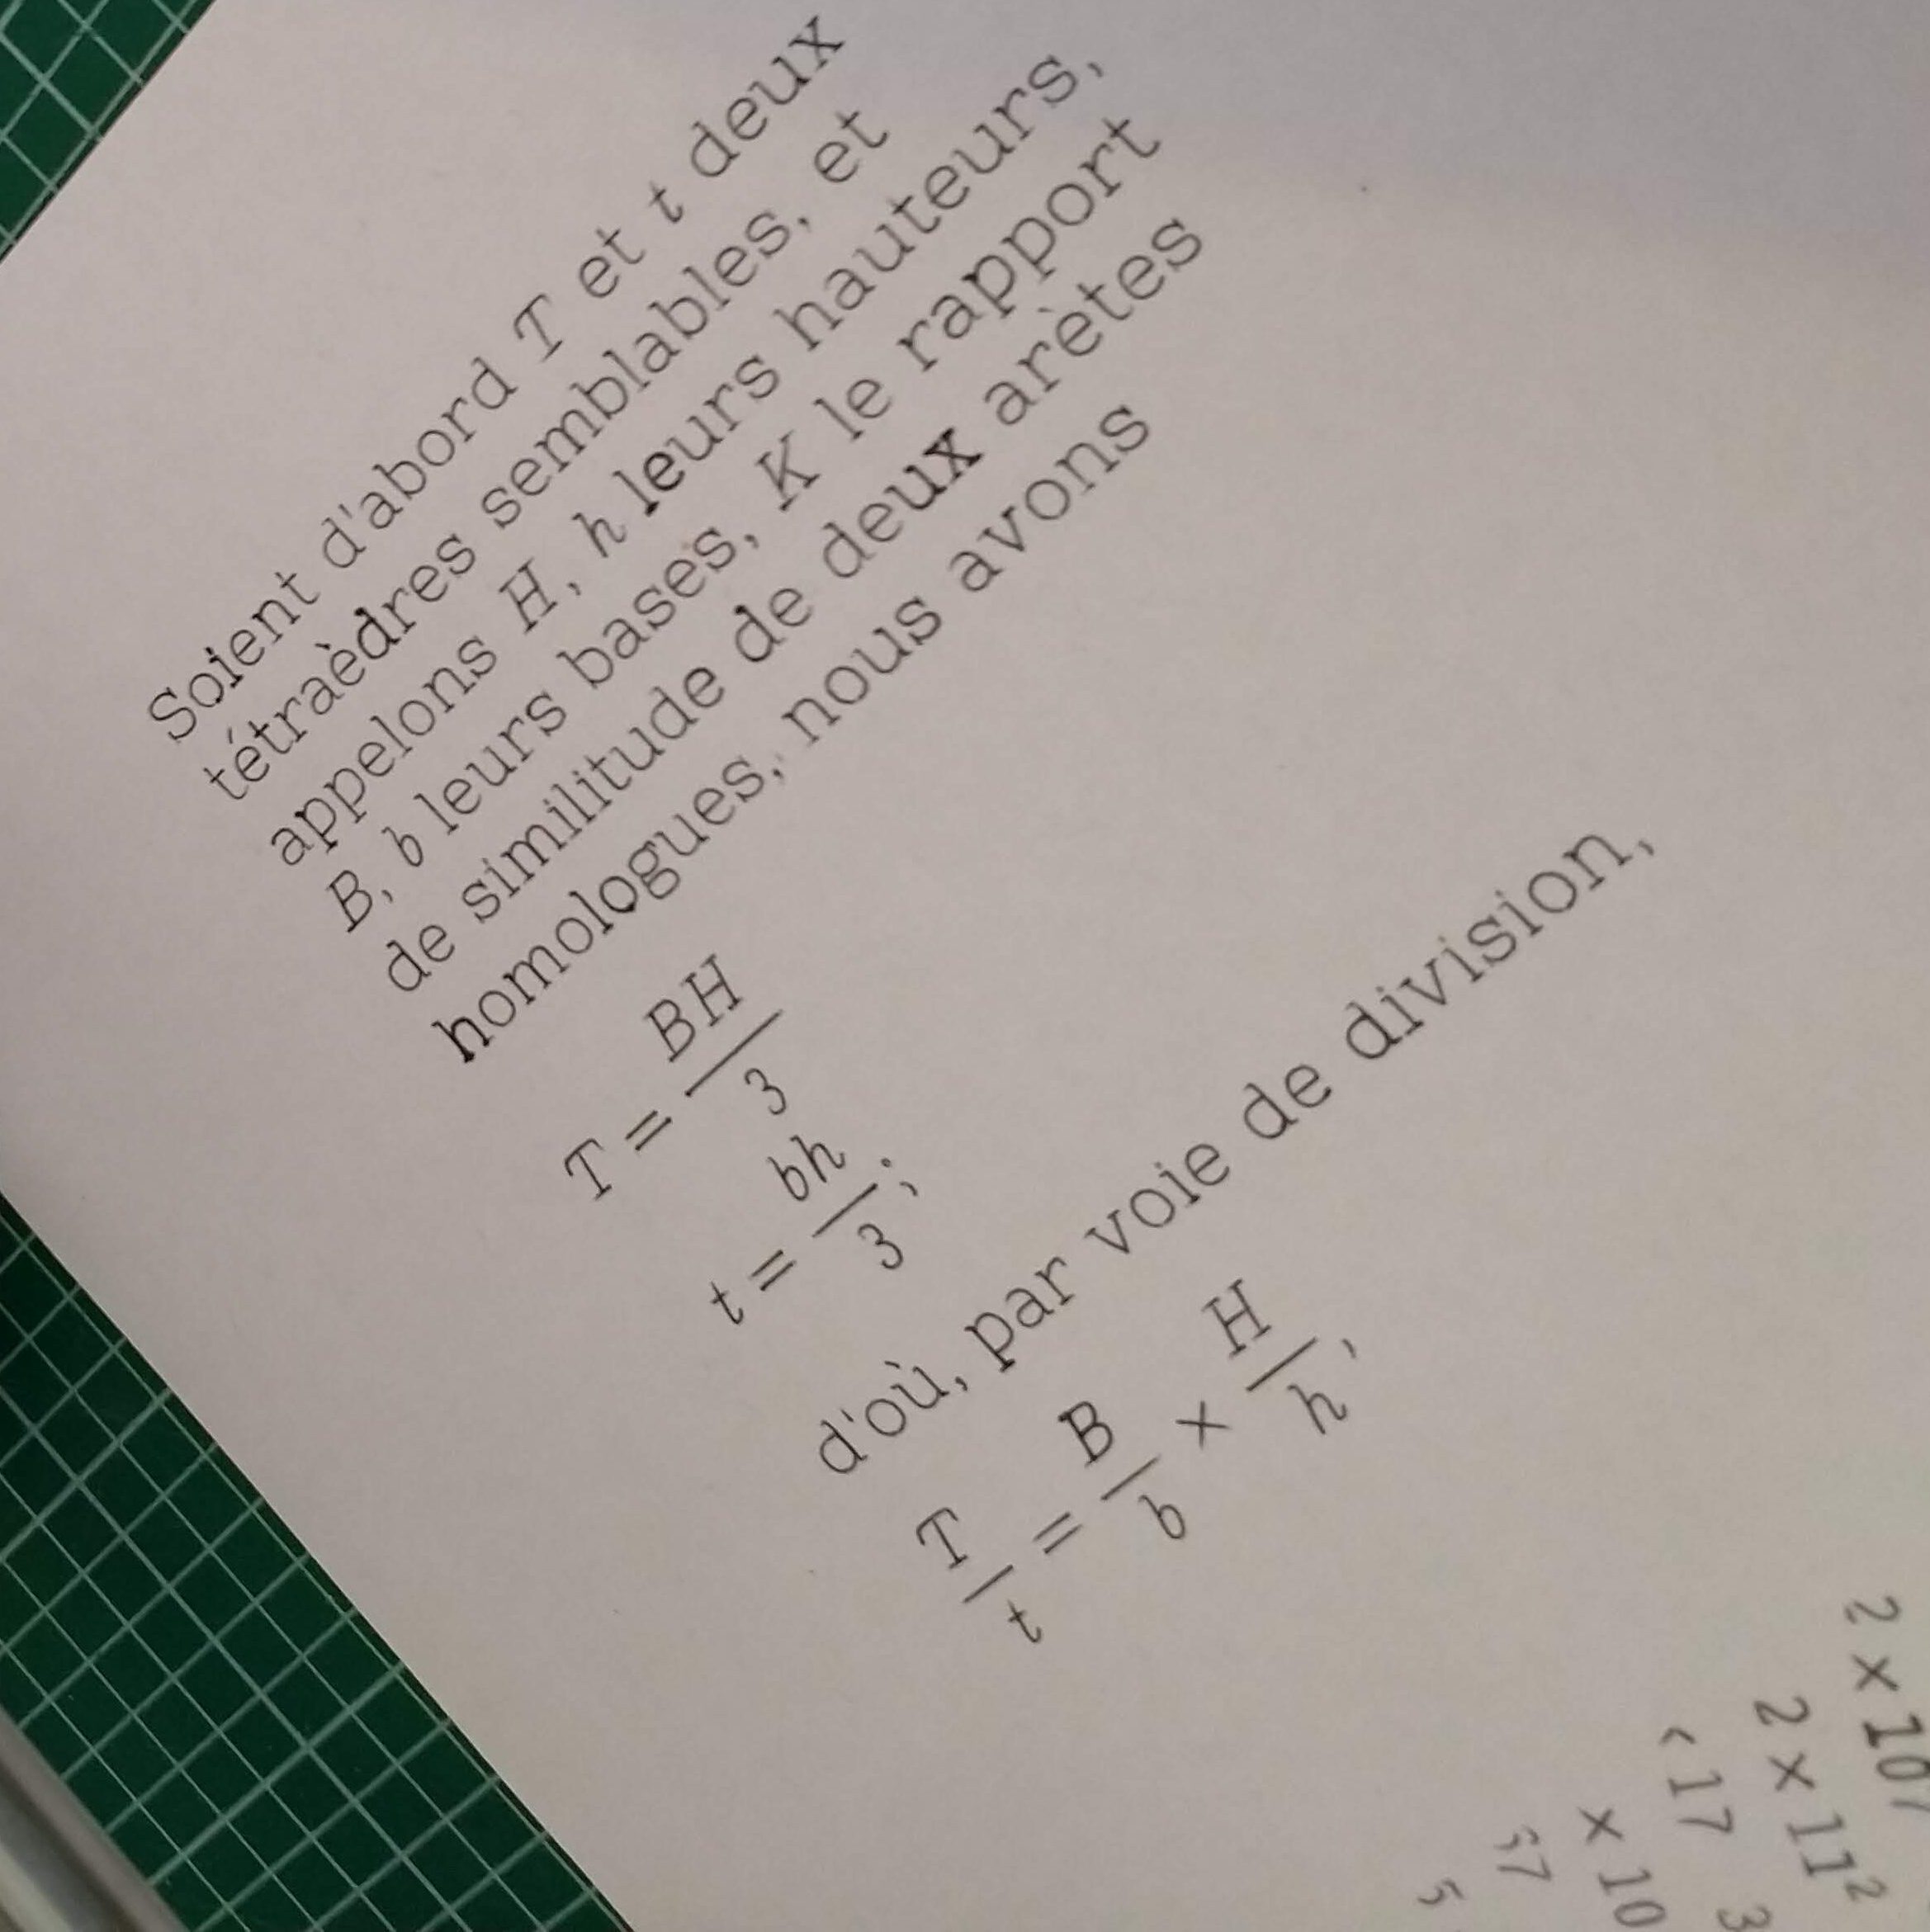 Soient d'abord T et t deux
tétraèdres semblables, et
appelons H, h leurs hauteurs,
B, b leurs bases, K le rapport
de similitude de deux arètes
homologues, nous avons
T = BH/3
t = bh/3 ;
d'où, par voie de division,
T/t = B/b × H/h,
2 × 107
2 × 11²
17 3
× 10
57
5